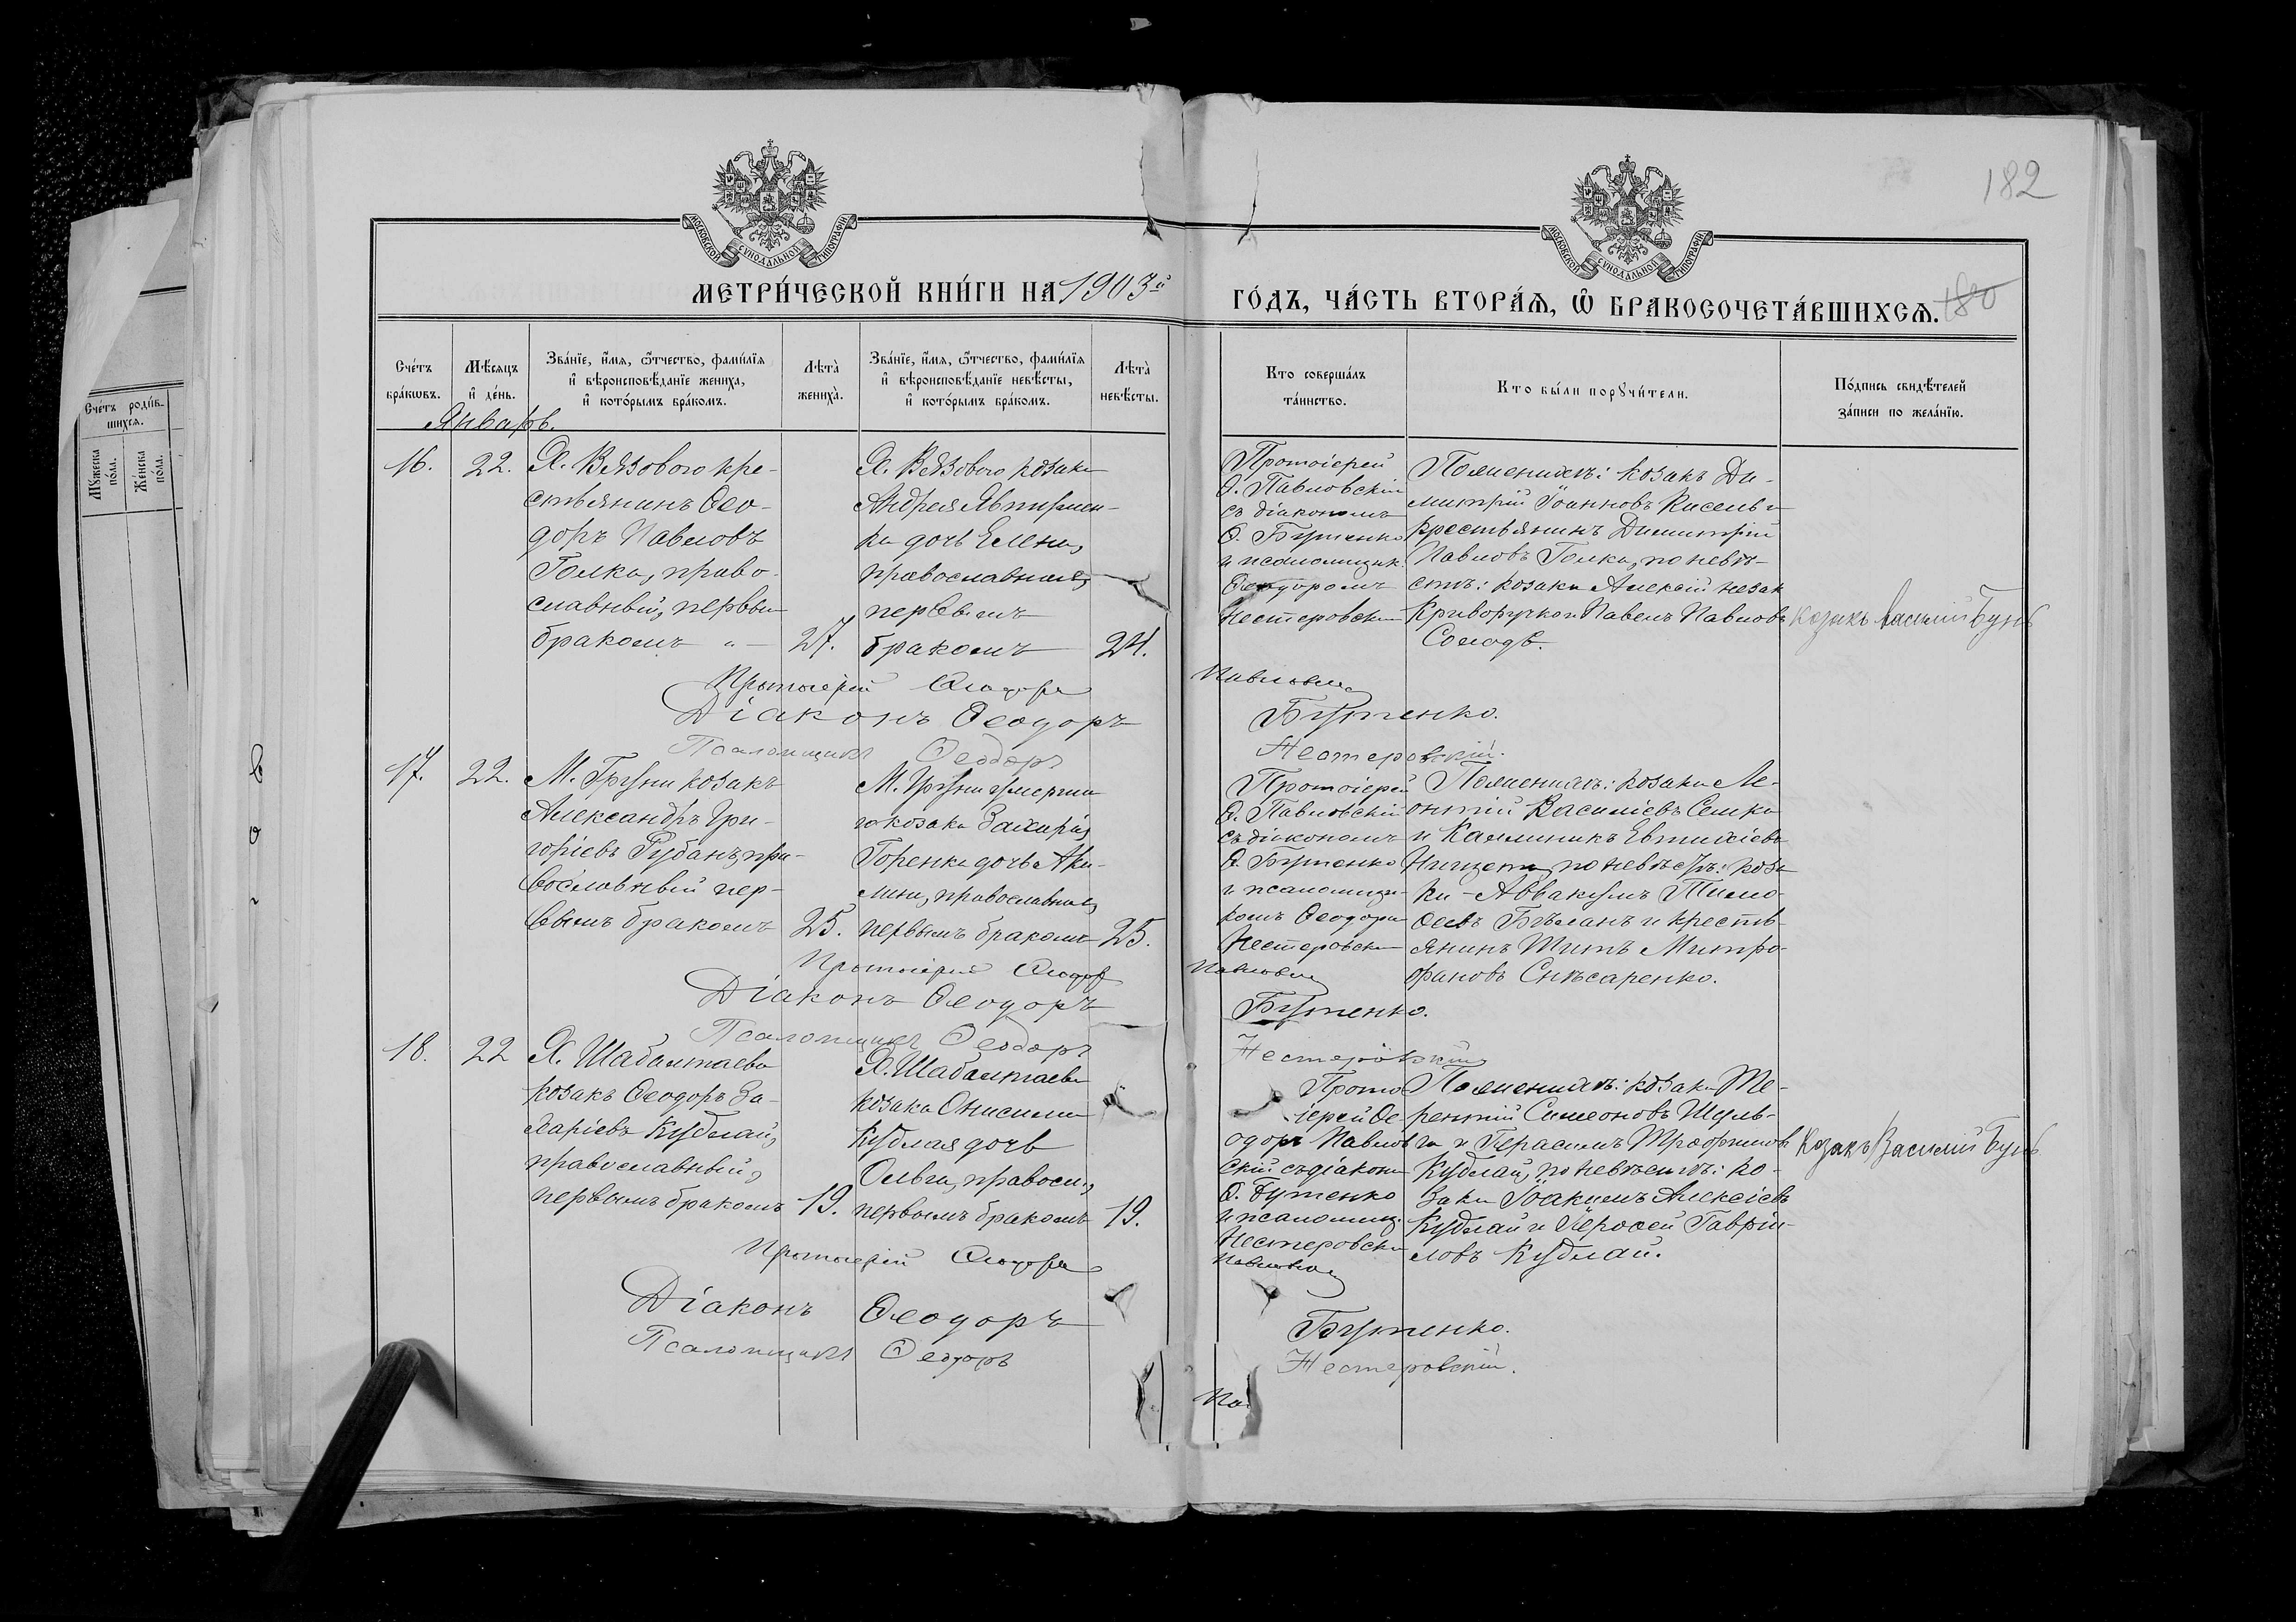 182
МОСКОВСКОЙ СУНОДАЛЬНОЙ ТИПОГРАФІИ
МОСКОВСКОЙ СУНОДАЛЬНОЙ ТИПОГРАФІИ
МЕТРИ́ЧЕСКОЙ КНИ́ГИ НА 1903й
ГО́ДЪ, ЧА́СТЬ ВТОРА́Ѧ, Ѡ҆ БРАКОСОЧЕТА́ВШИХСѦ.
180
Сче́тъ бра́кѡвъ.
Мѣ́сяцъ и҆ де́нь.
Зва́нїе, и҆́мѧ, ѻ҆́тчество, фамі́лїѧ
и҆ вѣроисповѣ́данїе жениха̀,
и҆ кото́рымъ бра́комъ.
Лѣ́та жениха̀.
Зва́нїе, и҆́мѧ, ѻ҆́тчество, фамі́лїѧ
и҆ вѣроисповѣ́данїе невѣ́сты,
и҆ кото́рымъ бра́комъ.
Лѣ́та невѣ́сты.
Кто соверша́лъ
та́инство.
Кто бы́ли порꙋчи́тели.
По́дпись свидѣ́телей
за́писи по жела́нїю.
Сче́тъ роди́в-
шихсѧ.
Мꙋ́жеска по́ла.
Же́нска по́ла.
Январь.
16.
22.
Х. Вязового кре-
стьянинъ Ѳео-
доръ Павловъ
Голка, право-
славный, первым
бракомъ " —
27.
Х. Вязового козака
Андрея Явтушен-
ка дочь Елена,
православная,
первымъ
бракомъ
24.
Протоіерей
Ѳ. Павловскій
съ діакономъ
Ѳ. Бутенко
и псаломщик.
Ѳеодоромъ
Нестеровски
По женихѣ: козакъ Ди-
митрій Іоанновъ Кисель и
крестьянинъ Димитрій
Павловъ Голка, по невѣ-
стѣ: козаки Алексій
Криворучко и Павелъ Павловъ
Солодъ.
Козакъ Василій Бунъ
Протоіерей Ѳеодоръ Павловск
Діаконъ Ѳеодоръ Бутенко.
Псаломщикъ Ѳеодоръ Нестеровскій.
17.
22.
М. Груни козакъ
Александръ Гри-
горіевъ Рубанъ, пра-
вославный пер-
вымъ бракомъ
25.
М. Груни умерша
го козака Захарія
Горенка дочь Аки-
лина, православная,
первымъ бракомъ
25.
Протоіерей
Ѳ. Павловскій
съ діакономъ
Ѳ. Бутенко
и псаломщи-
комъ Ѳеодоро
Нестеровски
По женихѣ: козаки Ле-
онтій Василіевъ Семка
и Каллиникъ Евтихіевъ
по невѣстѣ: коза
ки — Аввакумъ Тимо-
ѳеевъ Бѣланъ и кресть-
янинъ Титъ Митро-
фановъ Слѣсаренко.
Протоіерей Ѳеодор Павловск
Діаконъ Ѳеодоръ Бутенко.
Псаломщикъ Ѳеодоръ Нестеровскій
18.
22
Х. Шабалтаева
козакъ Ѳеодоръ За-
харіевъ Кублай,
православный,
первымъ бракомъ
19.
Х. Шабалтаева
козака Онисима
Кублая дочь
Ольга, правосл.,
первымъ бракомъ
19.
Прото
іерей Ѳе
одоръ Павлов
скій съ діакон
Ѳ. Бутенко
и псаломщ.
Нестеровски
По женихѣ: козаки Те-
рентій Симеоновъ Шуль-
га и Герасимъ Трофимов
Кублай, по невѣстѣ: ко-
заки Іоакимъ Алексіевъ
Кублай и Іероѳей Гаврiи-
ловъ Кублай.
Козакъ Василій Бунъ
Протоіерей Ѳеодоръ Павловск
Діаконъ Ѳеодоръ Бутенко.
Псаломщикъ Ѳеодоръ Нестеровскій.
Па